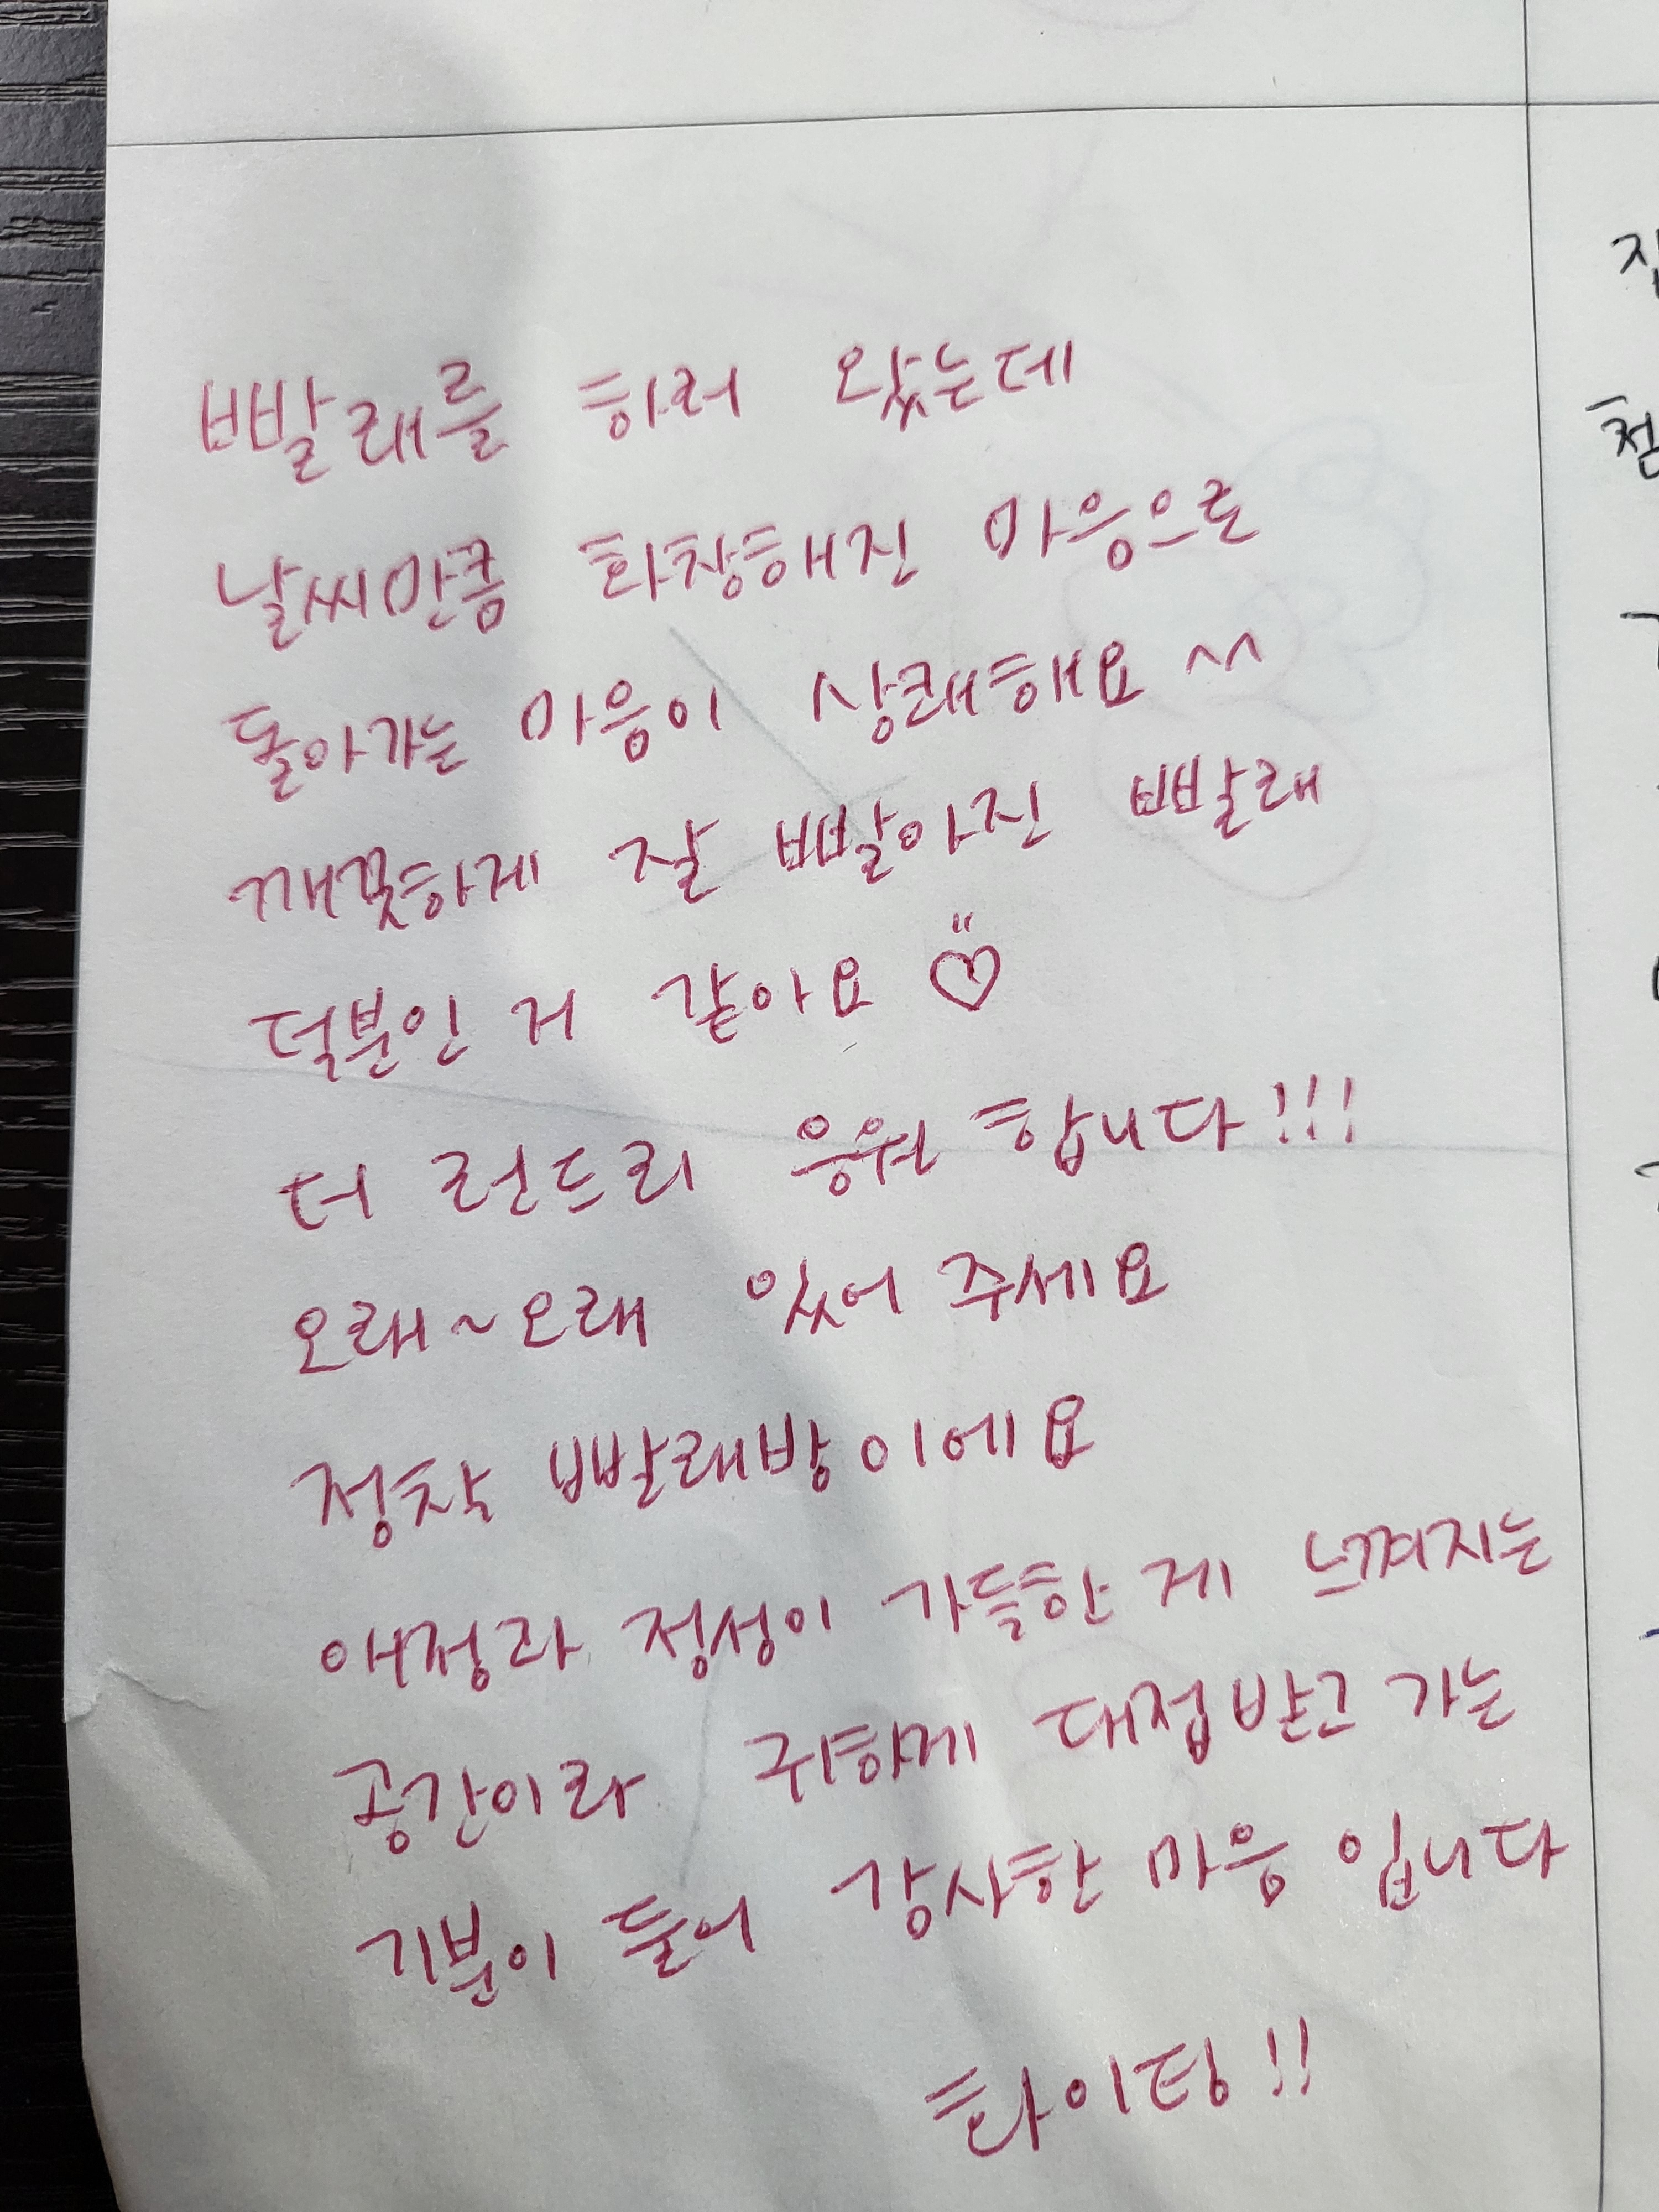 빨래를 하러 왔는데
날씨만큼 화창해진 마음으로
돌아가는 마음이 상쾌해요 ^^
깨끗하게 잘 빨아진 빨래
덕분인 거 같아요 ♡
더 런드리 응원 합니다!!!
오래~오래 있어 주세요
정착 빨래방이에요
애정과 정성이 가득한 게 느껴지는
공간이라 귀하게 대접받고 가는
기분이 들어 감사한 마음 입니다
화이팅!!